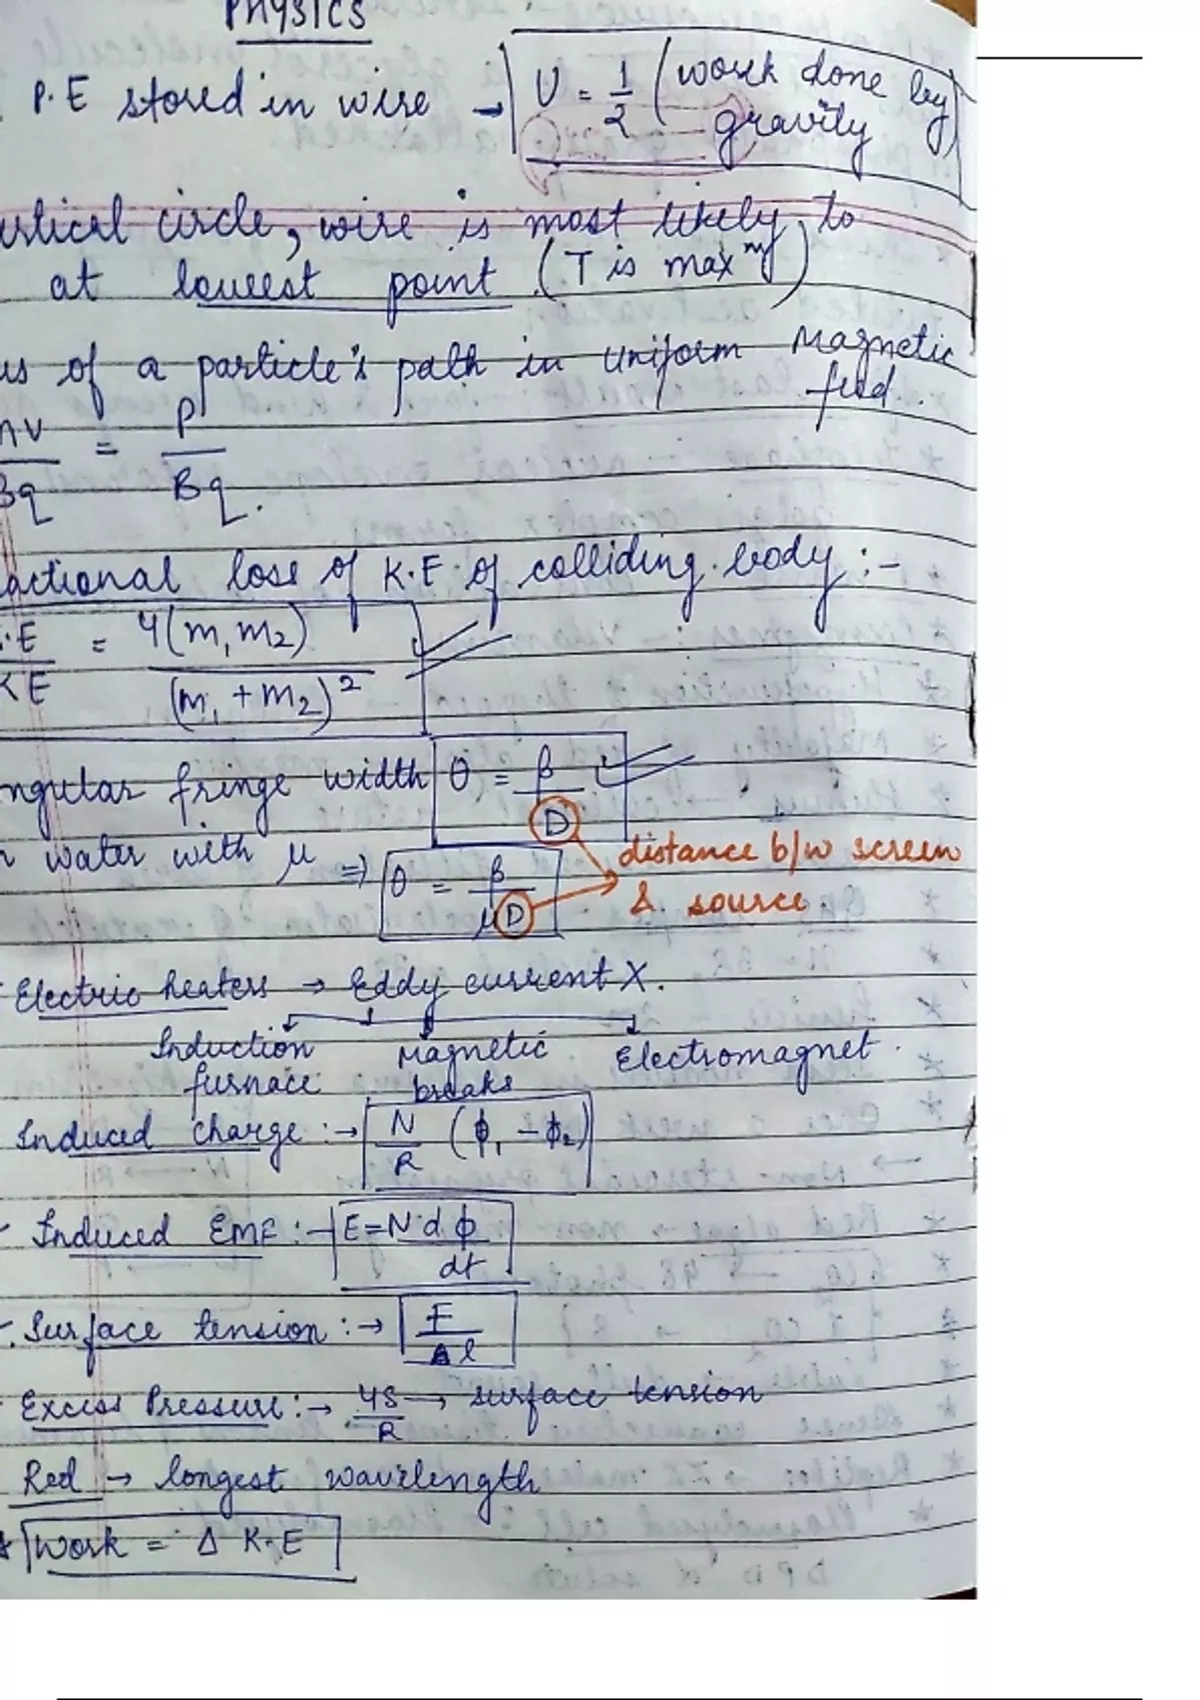 PHYSICS
P.E stored in wire → U = 1/2 (work done by gravity)
ertical circle, wire is most likely to
at lowest point (T is max^m)
us of a particle's path in uniform Magnetic
field.
mv/Bq = P/Bq.
actional loss of K.E of colliding body :-
K.E/KE = 4(m1m2)/(m1+m2)²
ngular fringe width θ = β/D
n water with μ ⇒ θ = β/μD
distance b/w screen
& source
Electric heaters → Eddy current X.
Induction furnace Magnetic breaks Electromagnet.
Induced charge :→ N/R (ϕ1 - ϕ2)
Induced EMF :- E=N dϕ/dt
Surface tension :→ F/l
Excess Pressure :→ 4S/R → surface tension
Red → longest wavelength
Work = Δ K.E